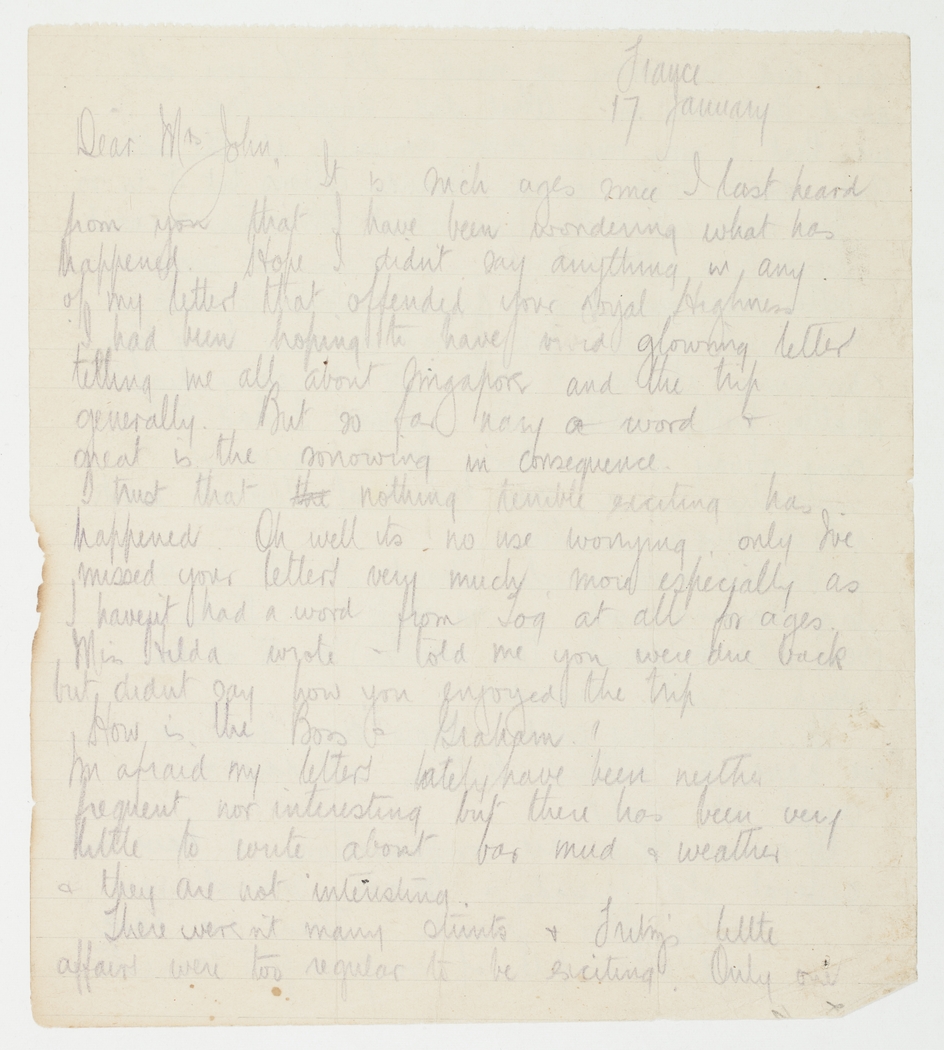 France
17. January
Dear Mrs John,
It is such ages since I last heard
from you that I have been wondering what has
happened. Hope I didn't say anything in any
of my letters that offended your Royal Highness
I had been hoping to have vivid glowing letter
telling me all about Singapore and the trip
generally. But so far nary a word &
great is the sorrowing in consequence.
I trust that the nothing terrible exciting has
happened. Oh well its no use worrying, only I've
missed your letters very much, more especially as
I haven't had a word from Log at all for ages.
Miss Hilda wrote & told me you were due back
but didnt say how you enjoyed the trip
How is the Boss & Graham?
Im afraid my letters lately have been neither
frequent nor interesting but there has been very
little to write about bar mud & weather
& they are not interesting.
There weren't many stunts & Fritz's little
affairs were too regular to be exciting. Only one